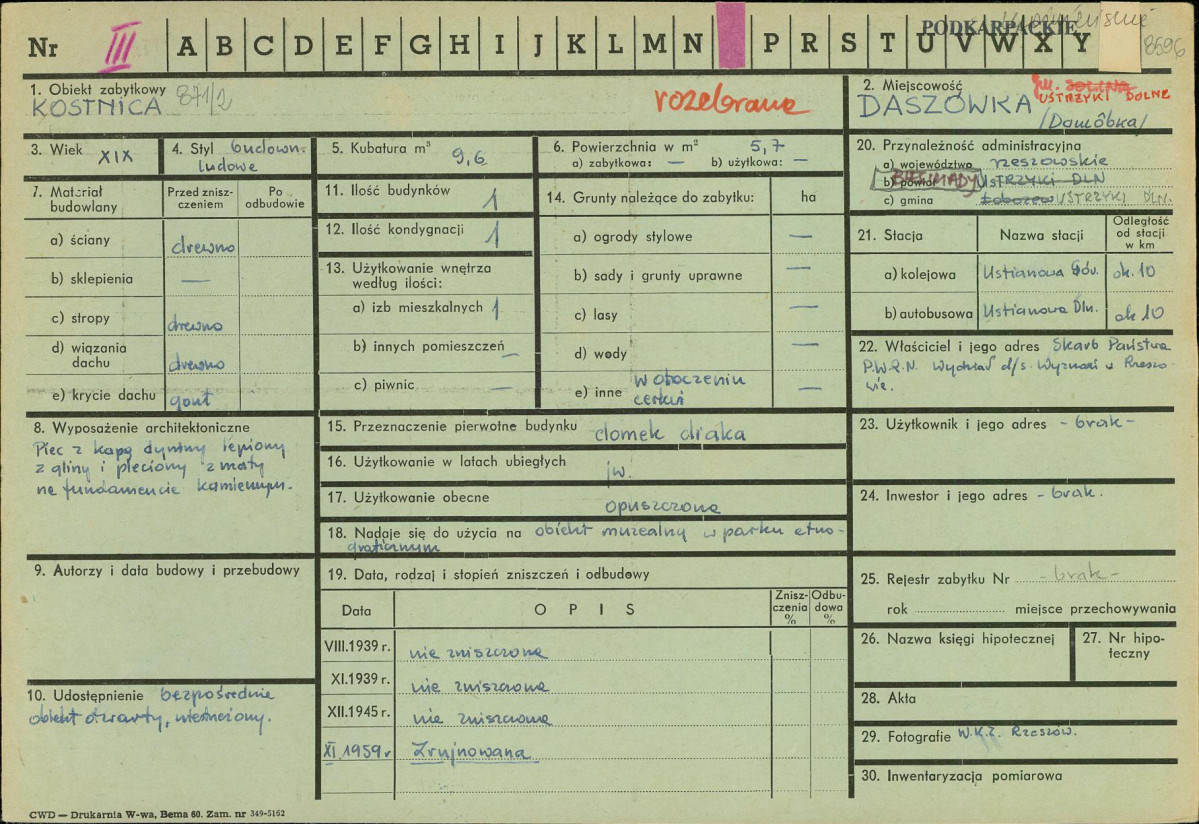 Nr III A B C D E F G H I J K L M N P R S T U V W X Y
PODKARPACKIE
8596
1. Obiekt zabytkowy
KOSTNICA 871/2
rozebrana
2. Miejscowość
gm. SOLINA
USTRZYKI DOLNE
DASZÓWKA
3. Wiek XIX
4. Styl budown.
ludowe
5. Kubatura m³ 9,6
6. Powierzchnia w m² 5,7
a) zabytkowa: — b) użytkowa: —
20. Przynależność administracyjna
a) województwo rzeszowskie
b) powiat USTRZYKI DLN
BIESZCZADY
c) gmina USTRZYKI DLN.
7. Materiał
budowlany
Przed znisz-
czeniem
Po
odbudowie
a) ściany drewno
b) sklepienia —
c) stropy drewno
d) wiązania
dachu drewno
e) krycie dachu gont
11. Ilość budynków 1
12. Ilość kondygnacji 1
13. Użytkowanie wnętrza
według ilości:
a) izb mieszkalnych 1
b) innych pomieszczeń —
c) piwnic —
14. Grunty należące do zabytku: ha
a) ogrody stylowe —
b) sady i grunty uprawne —
c) lasy —
d) wody —
e) inne w otoczeniu
cerkwi —
21. Stacja
Nazwa stacji
Odległość
od stacji
w km
a) kolejowa Ustianowa Gór. ok. 10
b) autobusowa Ustianowa Dln. ok 10
22. Właściciel i jego adres Skarb Państwa
P.W.R.N. Wydział d/s. Wyznań w Rzeszo-
wie.
8. Wyposażenie architektoniczne
Piec z kapą dymną lepiony
z gliny i pleciony z maty
na fundamencie kamiennym.
15. Przeznaczenie pierwotne budynku domek diaka
16. Użytkowanie w latach ubiegłych jw.
17. Użytkowanie obecne opuszczona
18. Nadaje się do użycia na obiekt muzealny w parku etno-
graficznym
23. Użytkownik i jego adres - brak -
24. Inwestor i jego adres - brak.
9. Autorzy i data budowy i przebudowy
19. Data, rodzaj i stopień zniszczeń i odbudowy
Data
O P I S
Znisz-
czenia
%
Odbu-
dowa
%
VIII.1939 r. nie zniszczona
XI.1939 r. nie zniszczona
XII.1945 r. nie zniszczona
XI 1959 r Zrujnowana
25. Rejestr zabytku Nr - brak -
rok miejsce przechowywania
26. Nazwa księgi hipotecznej
27. Nr hipo-
teczny
10. Udostępnienie bezpośrednie
obiekt otwarty,
28. Akta
29. Fotografie W.K.Z. Rzeszów.
30. Inwentaryzacja pomiarowa
CWD — Drukarnia W-wa, Bema 60. Zam. nr 349-5162